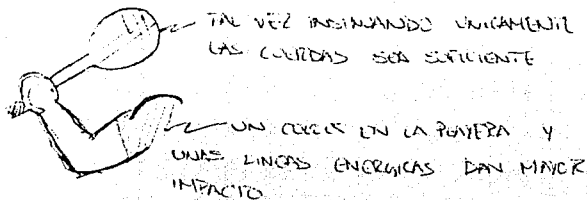 TAL VEZ INSINUANDO UNICAMENTE
LAS CUERDAS SEA SUFICIENTE
UN EN LA PLAYERA Y
UNAS LINEAS ENERGICAS DAN MAYOR
IMPACTO